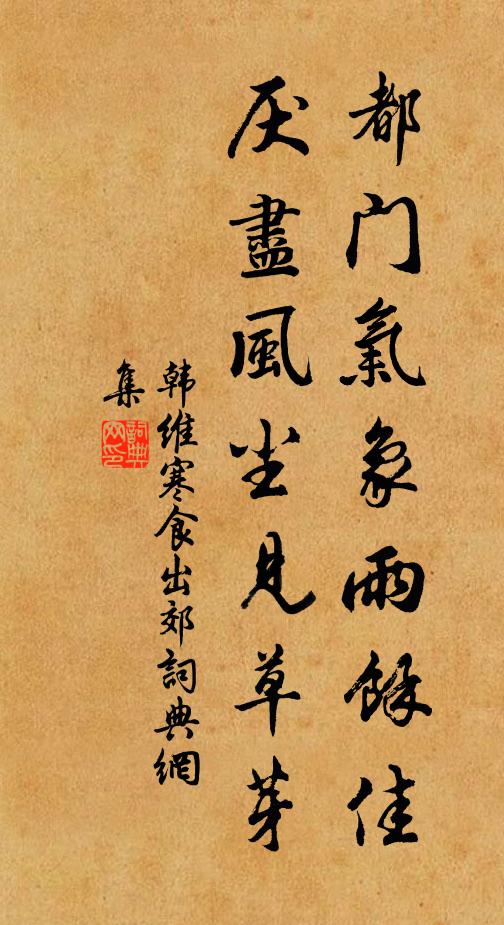 都门氣象雨餘佳
厌盡風尘見草芽
韩维寒食出郊詞典網
集
詞典网印